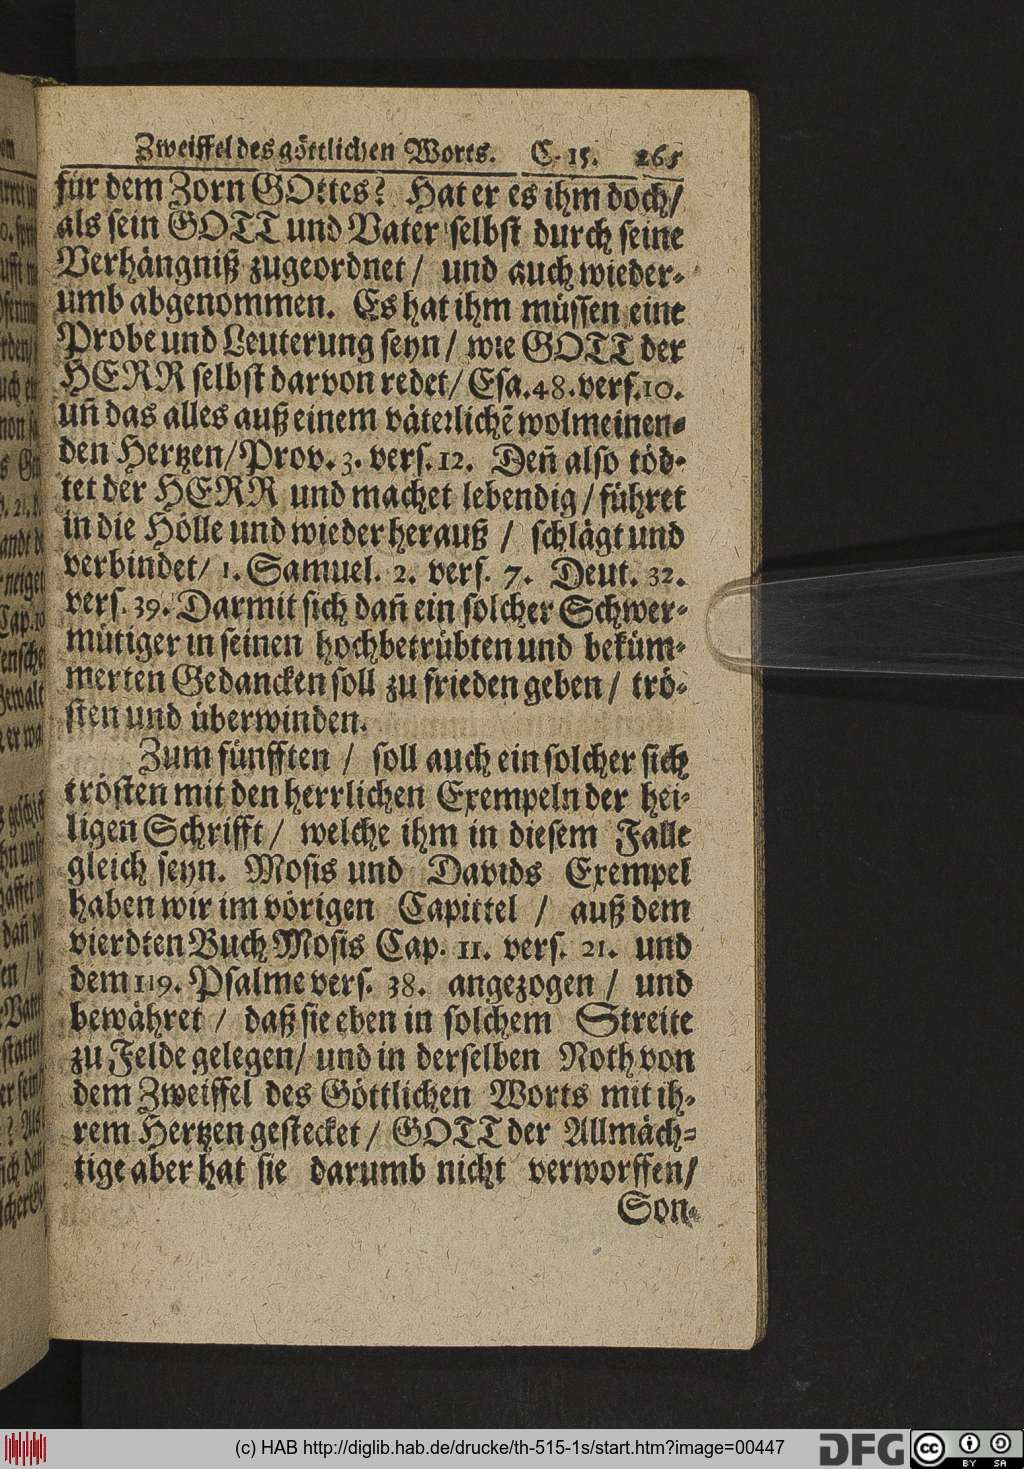 Zweiffel des göttlichen Worts. C. 15. 265
für dem Zorn GOttes? Hat er es ihm doch/
als sein GOTT und Vater selbst durch seine
Verhängniß zugeordnet/ und auch wieder-
umb abgenommen. Es hat ihm müssen eine
Probe und Leuterung seyn/ wie GOTT der
HERR selbst darvon redet/ Esa. 48. vers. 10.
uñ das alles auß einem väterlichẽ wolmeinen-
den Hertzen/ Prov. 3. vers. 12. Deñ also töd-
tet der HERR und machet lebendig/ führet
in die Hölle und wieder herauß/ schlägt und
verbindet/ 1. Samuel. 2. vers. 7. Deut. 32.
vers. 39. Darmit sich dañ ein solcher Schwer-
mütiger in seinen hochbetrübten und beküm-
merten Gedancken soll zu frieden geben/ trö-
sten und überwinden.
Zum fünfften/ soll auch ein solcher sich
trösten mit den herrlichen Exempeln der hei-
ligen Schrifft/ welche ihm in diesem Falle
gleich seyn. Mosis und Davids Exempel
haben wir im vörigen Capittel/ auß dem
vierdten Buch Mosis Cap. 11. vers. 21. und
dem 119. Psalme vers. 38. angezogen/ und
bewähret/ daß sie eben in solchem Streite
zu Felde gelegen/ und in derselben Noth von
dem Zweiffel des Göttlichen Worts mit ih-
rem Hertzen gestecket/ GOTT der Allmäch-
tige aber hat sie darumb nicht verworffen/
Son-
(c) HAB http://diglib.hab.de/drucke/th-515-1s/start.htm?image=00447
DFG
cc BY SA